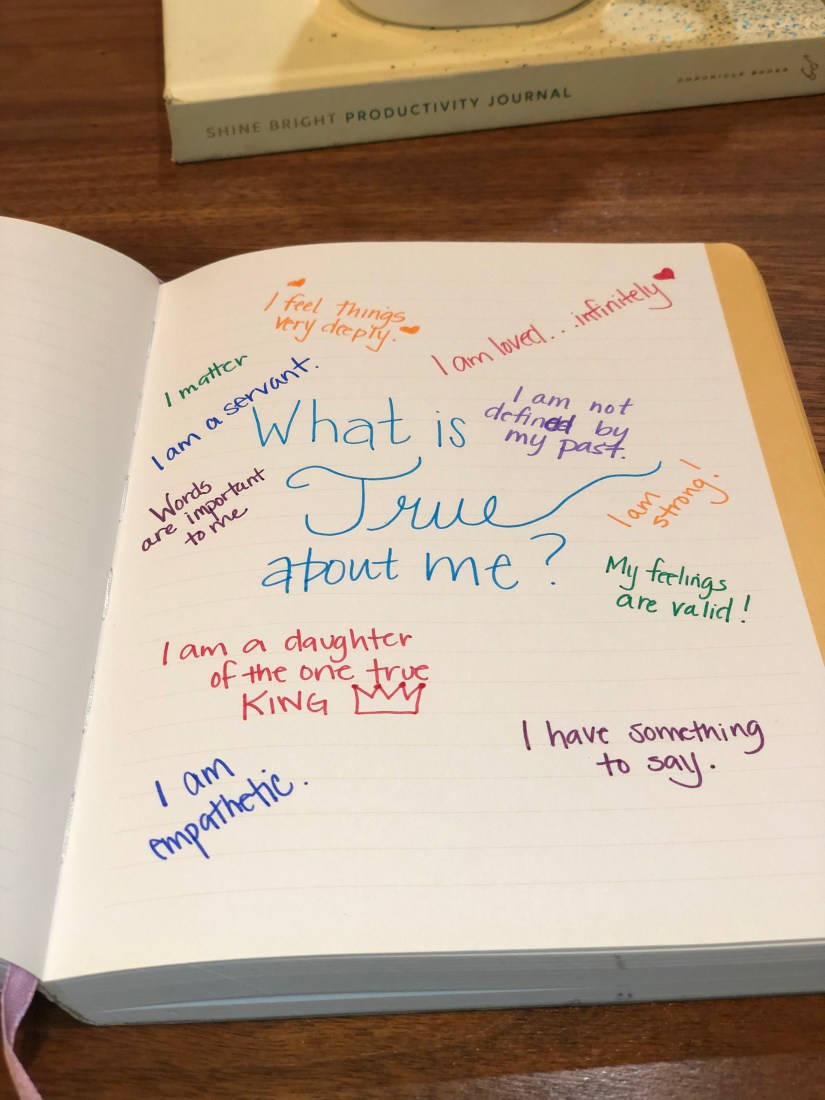 SHINE BRIGHT PRODUCTIVITY JOURNAL
CHRONICLE BOOKS
I feel things
very deeply.
I am loved...infinitely
I matter
I am a servant.
What is
True
about me?
I am not
defined by
my past.
Words
are important
to me
I am
strong!
My feelings
are valid!
I am a daughter
of the one true
KING
I have something
to say.
I am
empathetic.